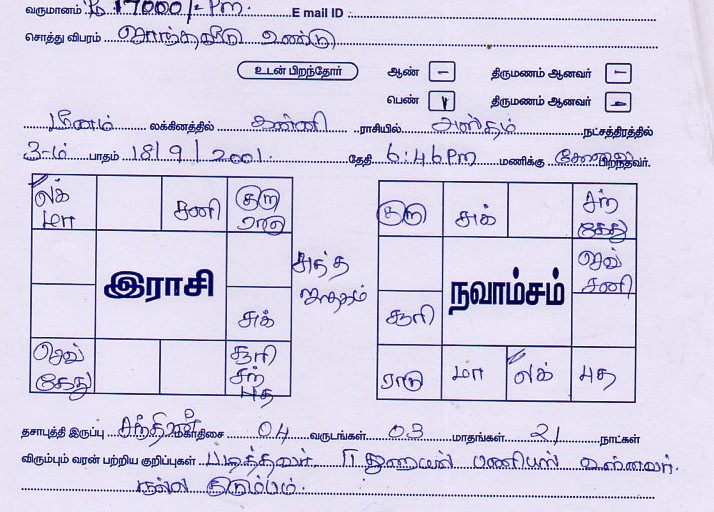 வருமானம் ரூ 17000/- Pm E mail ID :
சொத்து விபரம் சொந்தவீடு உண்டு
உடன் பிறந்தோர் ஆண் – திருமணம் ஆனவர் –
பெண் 1 திருமணம் ஆனவர் –
மீனம் லக்கினத்தில் கன்னி ராசியில் அஸ்தம் நட்சத்திரத்தில்
3-ம் பாதம் 18/9/2001 தேதி 6:46 Pm மணிக்கு பிறந்தவர்.
லக் மா சனி குரு ராகு
குரு சுக் சந் கேது
சுத்த ஜாதகம்
இராசி
நவாம்சம்
செவ் சனி
சுக்
சூரி
செவ் கேது சூரி சந் புத
ராகு மா லக் புத
தசாபுத்தி இருப்பு சந்திரன் மகாதிசை 04 வருடங்கள் 03 மாதங்கள் 21 நாட்கள்
விரும்பும் வரன் பற்றிய குறிப்புகள் படித்தவர். பணியில் உள்ளவர்.
நல்ல குடும்பம்.